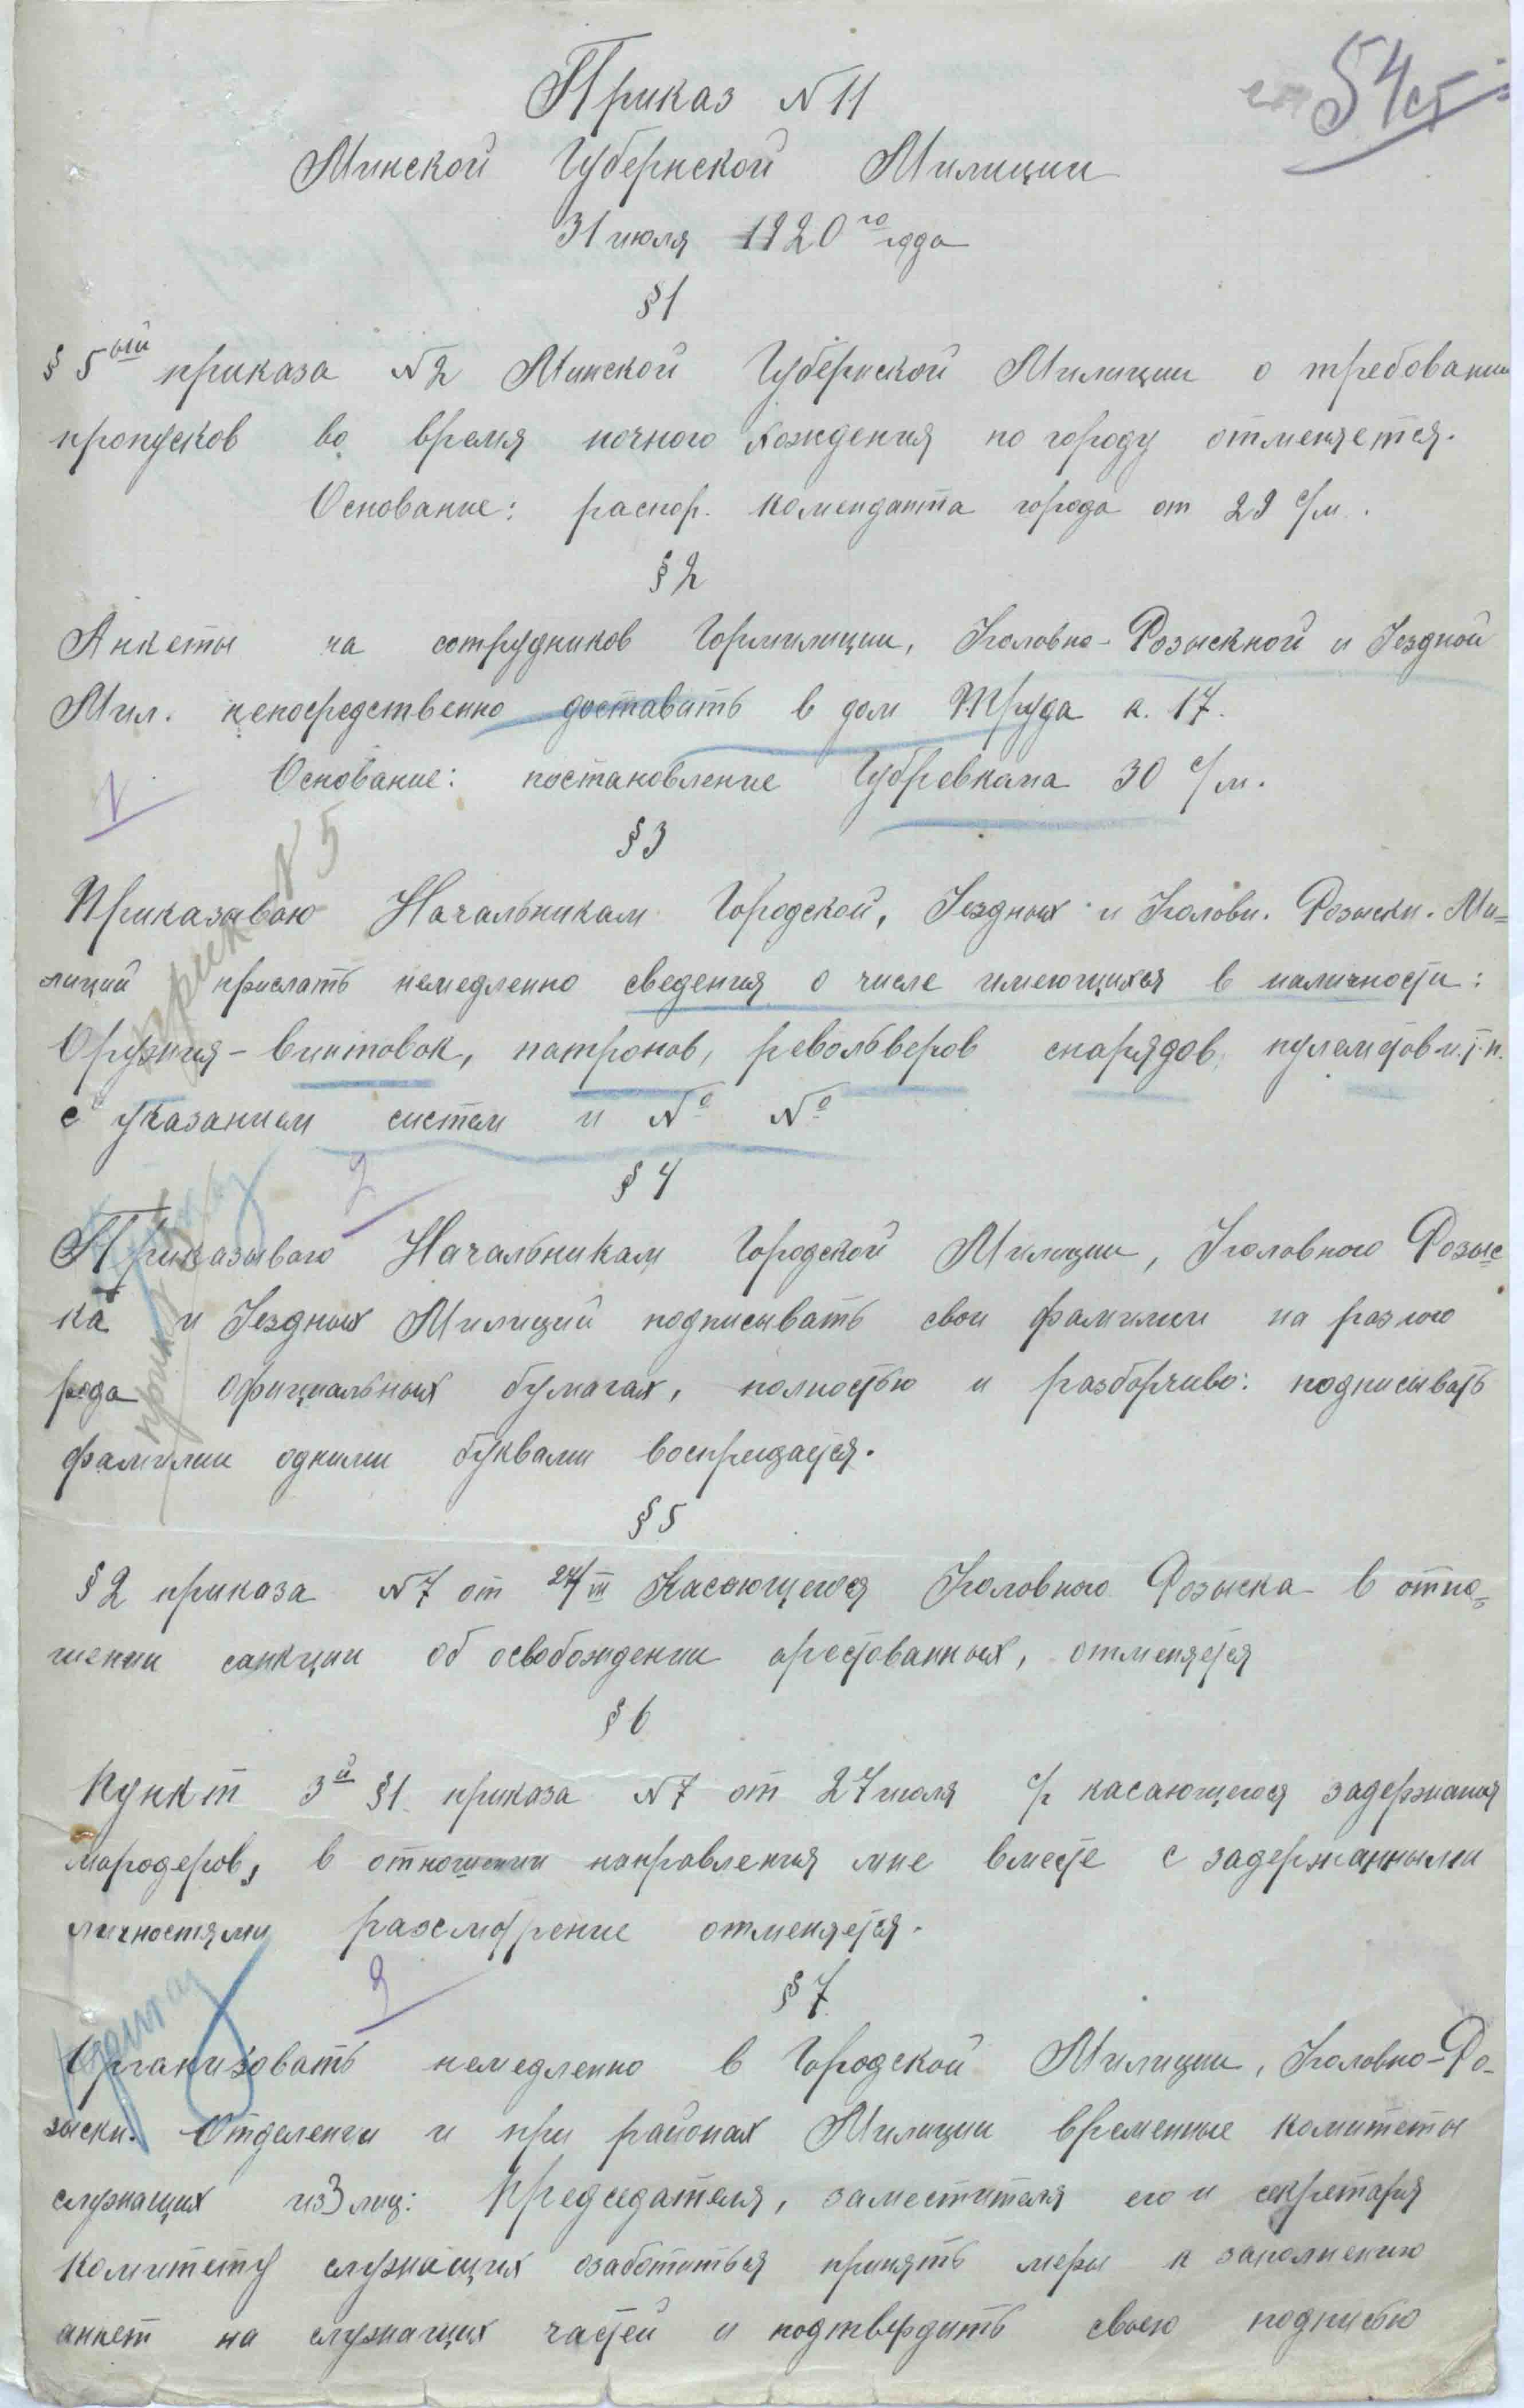 54
Приказ № 11
Минской Губернской Милиции
31 июля 1920го года
§1
§ 5ый приказа № 2 Минской Губернской Милиции о требовании
пропусков во время ночного хождения по городу отменяется.
Основание: распор. комендантта города от 29 с/м.
§ 2
Анкеты на сотрудников Гормилиции, Уголовно-Розыскной и Уездной
Мил. непосредственно доставить в дом Труда к. 17.
Основание: постановление Губревкома 30 с/м.
1
§3
Приказываю Начальникам Городской, Уездных и Уголовн. Розыскн. Ми-
лиций прислать немедленно сведения о числе имеющихся в наличности:
Оружия - винтовок, патронов, револьверов снарядов, пулеметов и.т.п.
с указанием систем и № №
приказ № 5
2
§ 4
Приказываю Начальникам Городской Милиции, Уголовного Розыс-
ка и Уездных Милиций подписывать свои фамилии на разного
рода официальных бумагах, полностью и разборчиво: подписывать
фамилии одними буквами воспрещается.
приказ
§ 5
§ 2 приказа № 7 от 27/VII Касающегося Уголовного Розыска в отно-
шении санкции об освобождении арестованных, отменяется
§ 6
Пункт 3й §1 приказа № 7 от 27 июля с/г касающегося задержания
мародеров, в отношении направления мне вместе с задержанными
личностями рассмотрение отменяется.
3
§ 7
Организовать немедленно в Городской Милиции, Уголовно-Ро-
зыскн. Отделении и при районах Милиции временные комитеты
служащих из 3 лиц: Председателя, заместителя его и секретаря
комитету служащих озаботиться принять меры к заполнению
анкет на служащих частей и подтвердить своею подписью